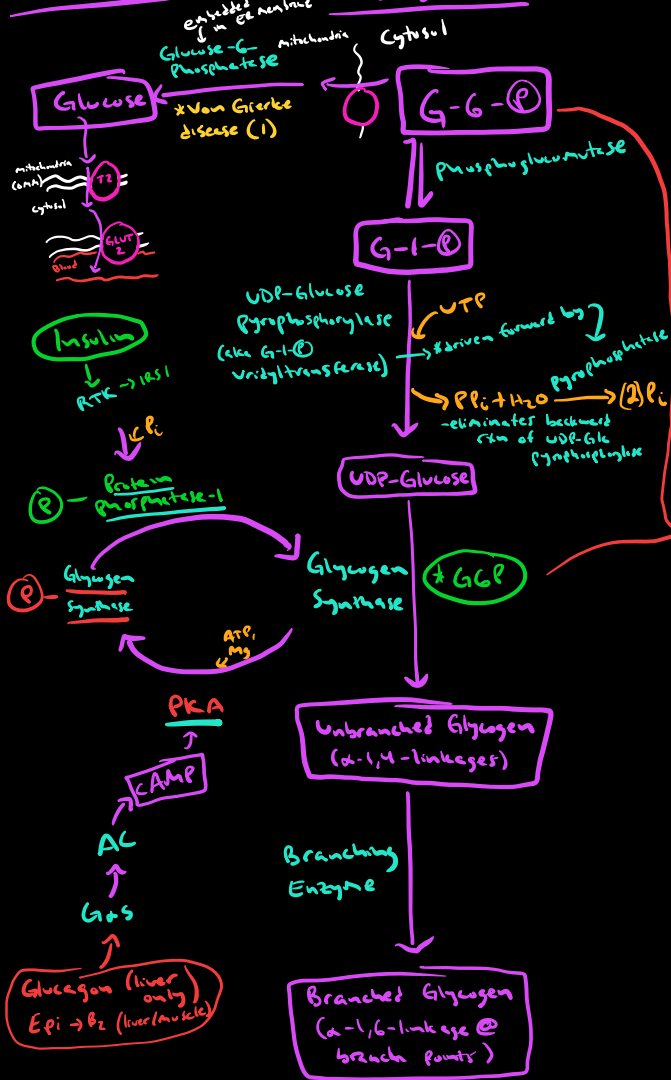 embedded
in ER membrane
Glucose-6-
phosphatase
mitochondria
Cytosol
Glucose
*Von Gierke
disease (1)
G-6-P
phosphoglucomutase
mitochondria
(OMM)
T2
cytosol
GLUT
2
Blood
G-1-P
UDP-Glucose
pyrophosphorylase
(aka G-1-P
uridyltransferase)
UTP
*driven forward by
pyrophosphatase
PPi + H2O
(2)Pi
-eliminates backward
rxn of UDP-Glc
pyrophosphorylase
Insulin
RTK → IRS1
Pi
P - Protein
phosphatase-1
UDP-Glucose
P - Glycogen
Synthase
Glycogen
Synthase
*G6P
ATP,
Mg
PKA
cAMP
AC
Gαs
Glucagon (liver
only)
Epi → B2 (liver/muscle)
Unbranched Glycogen
(α-1,4-linkages)
Branching
Enzyme
Branched Glycogen
(α-1,6-linkage @
branch points)